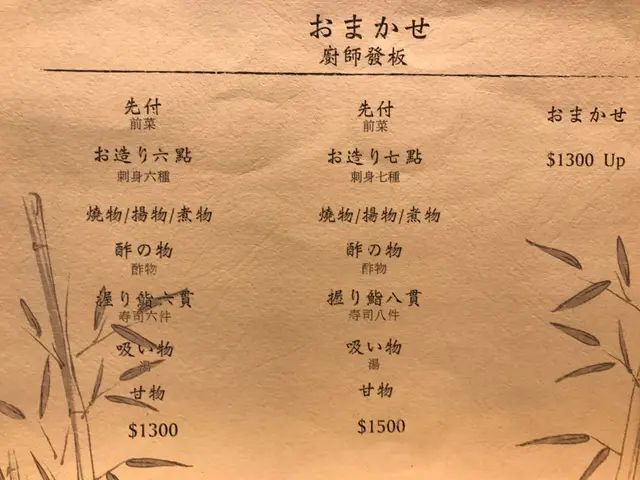 おまかせ
廚師發板
先付
前菜
お造り六點
刺身六種
燒物/揚物/煮物
酢の物
酢物
握り鮨六貫
寿司六件
吸い物
湯
甘物
$1300
先付
前菜
お造り七點
刺身七種
燒物/揚物/煮物
酢の物
酢物
握り鮨八貫
寿司八件
吸い物
湯
甘物
$1500
おまかせ
$1300 Up